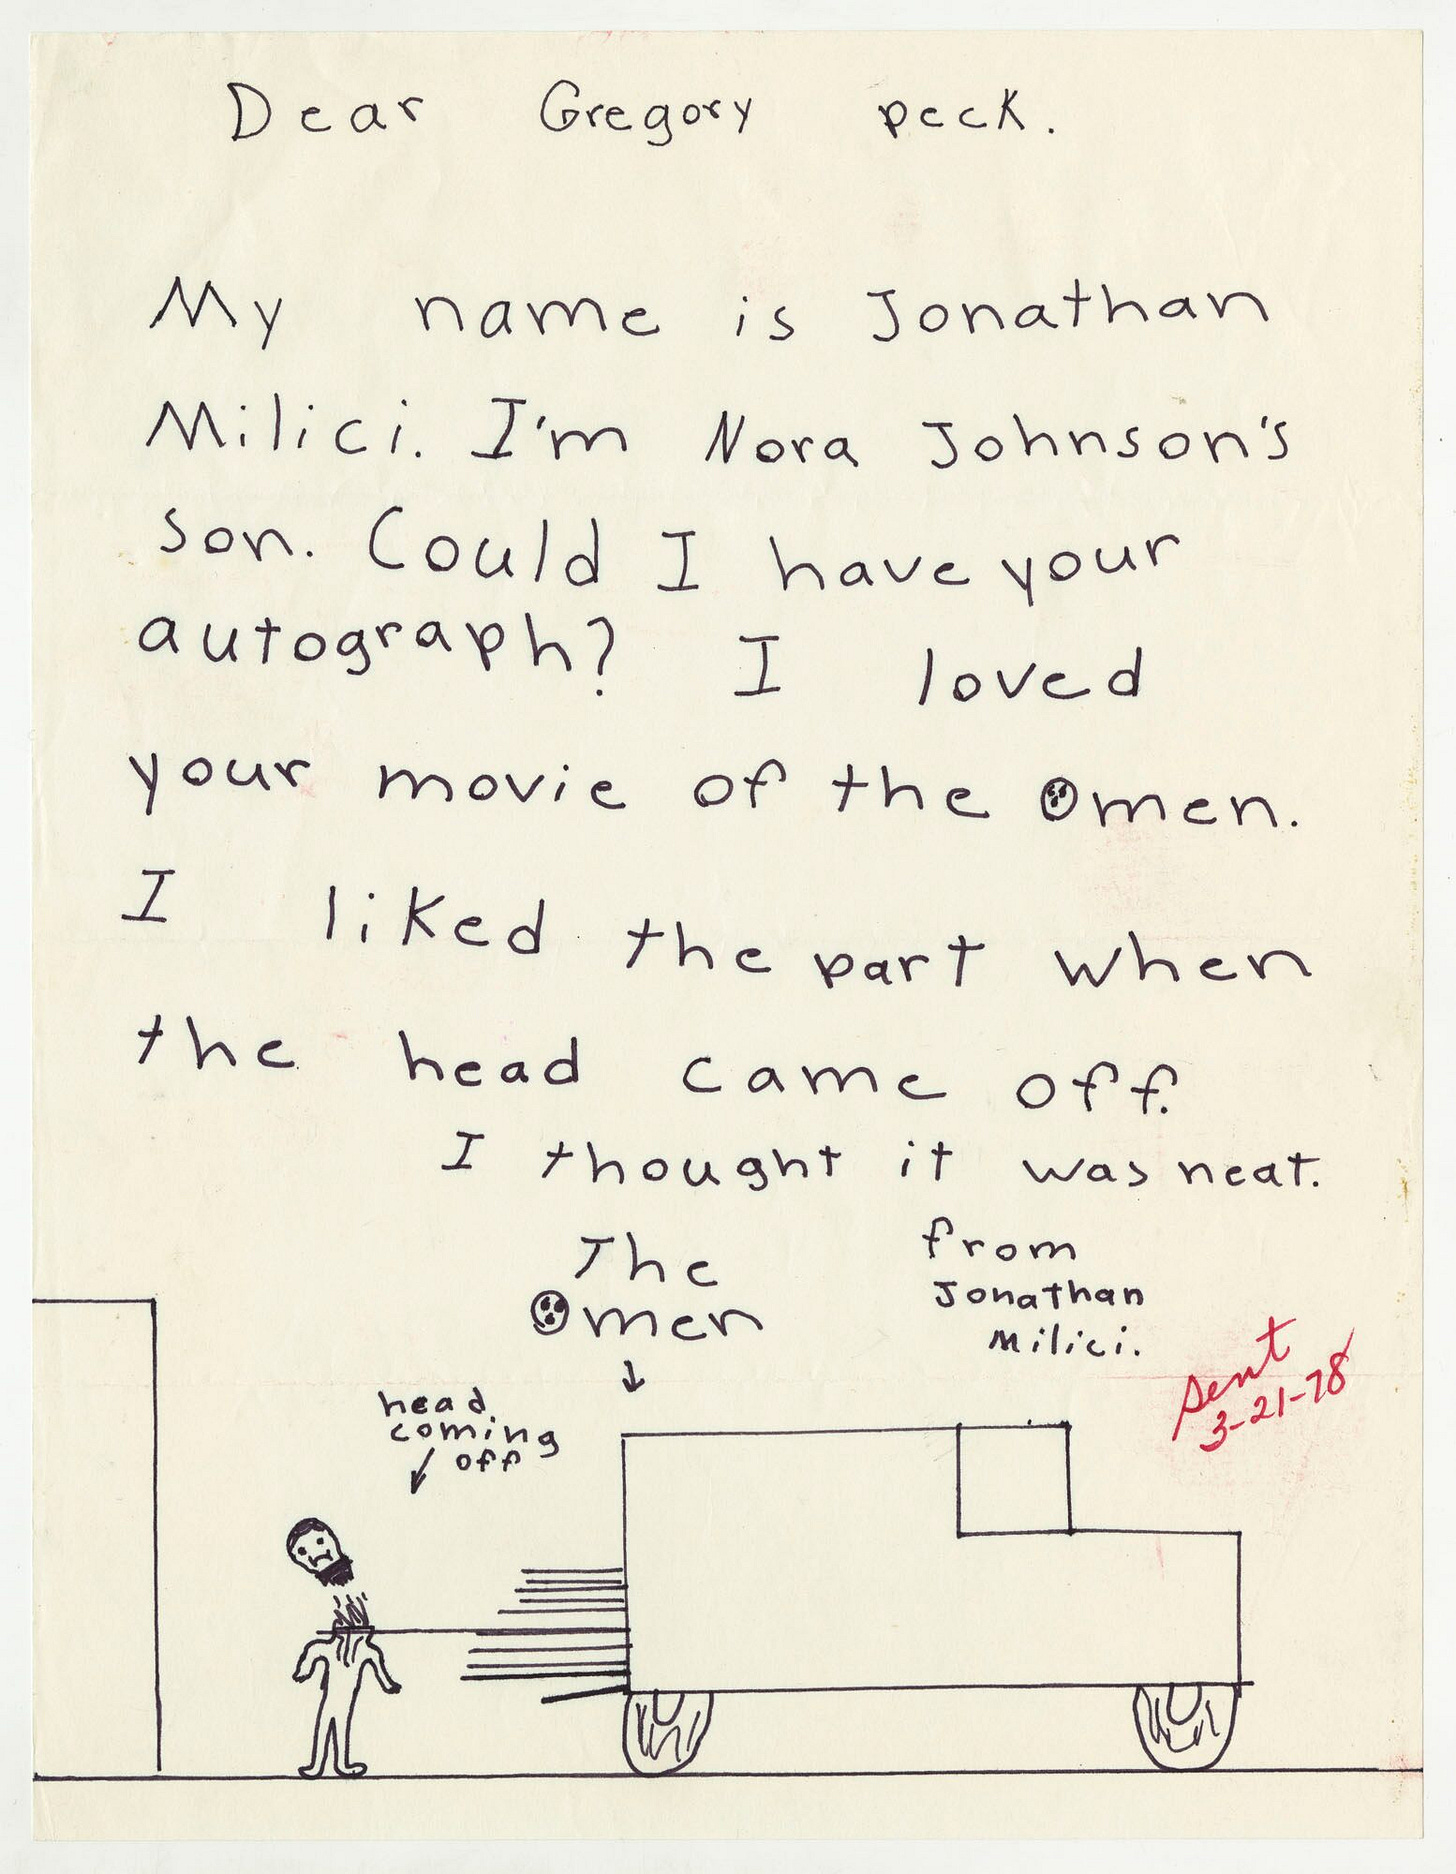 Dear Gregory peck.
My name is Jonathan
Milici. I'm Nora Johnson's
son. Could I have your
autograph? I loved
your movie of the Omen.
I liked the part when
the head came off.
I thought it was neat.
from
Jonathan
Milici.
The
Omen
sent
3-21-78
head
coming
off